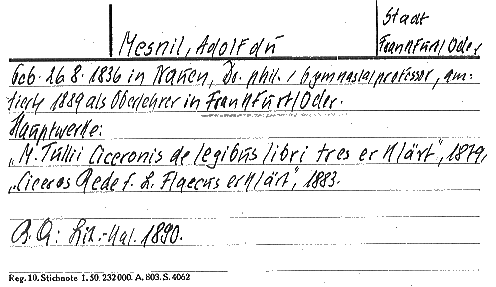 Stadt
Mesnil, Adolf du Frankfurt/Oder
Geb. 26.8. 1836 in Nauen, Dr. phil., Gymnasialprofessor, am-
tiert 1889 als Oberlehrer in Frankfurt/Oder.
Hauptwerke:
„M. Tullii Ciceronis de legibus libri tres erklärt", 1879,
„Ciceros Rede f. L. Flaccus erklärt", 1883.
B.Q: Lit.-Kal. 1890.
Reg. 10. Stichnote 1. 50. 232000. A. 803. S. 4062